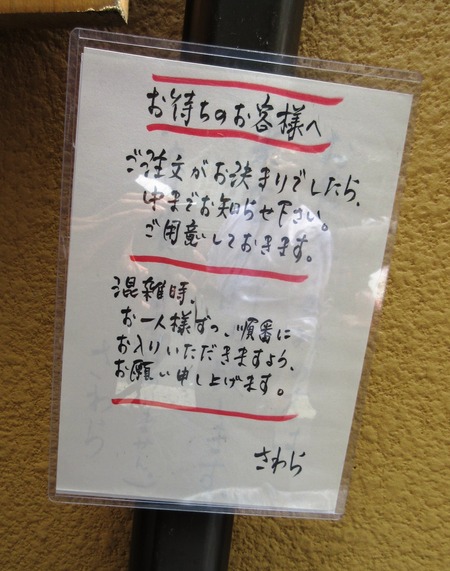 お待ちのお客様へ
ご注文がお決まりでしたら、
中までお知らせ下さい。
ご用意しておきます。
混雑時、
お一人様ずつ、順番に
お入りいただきますよう、
お願い申し上げます。
さわら